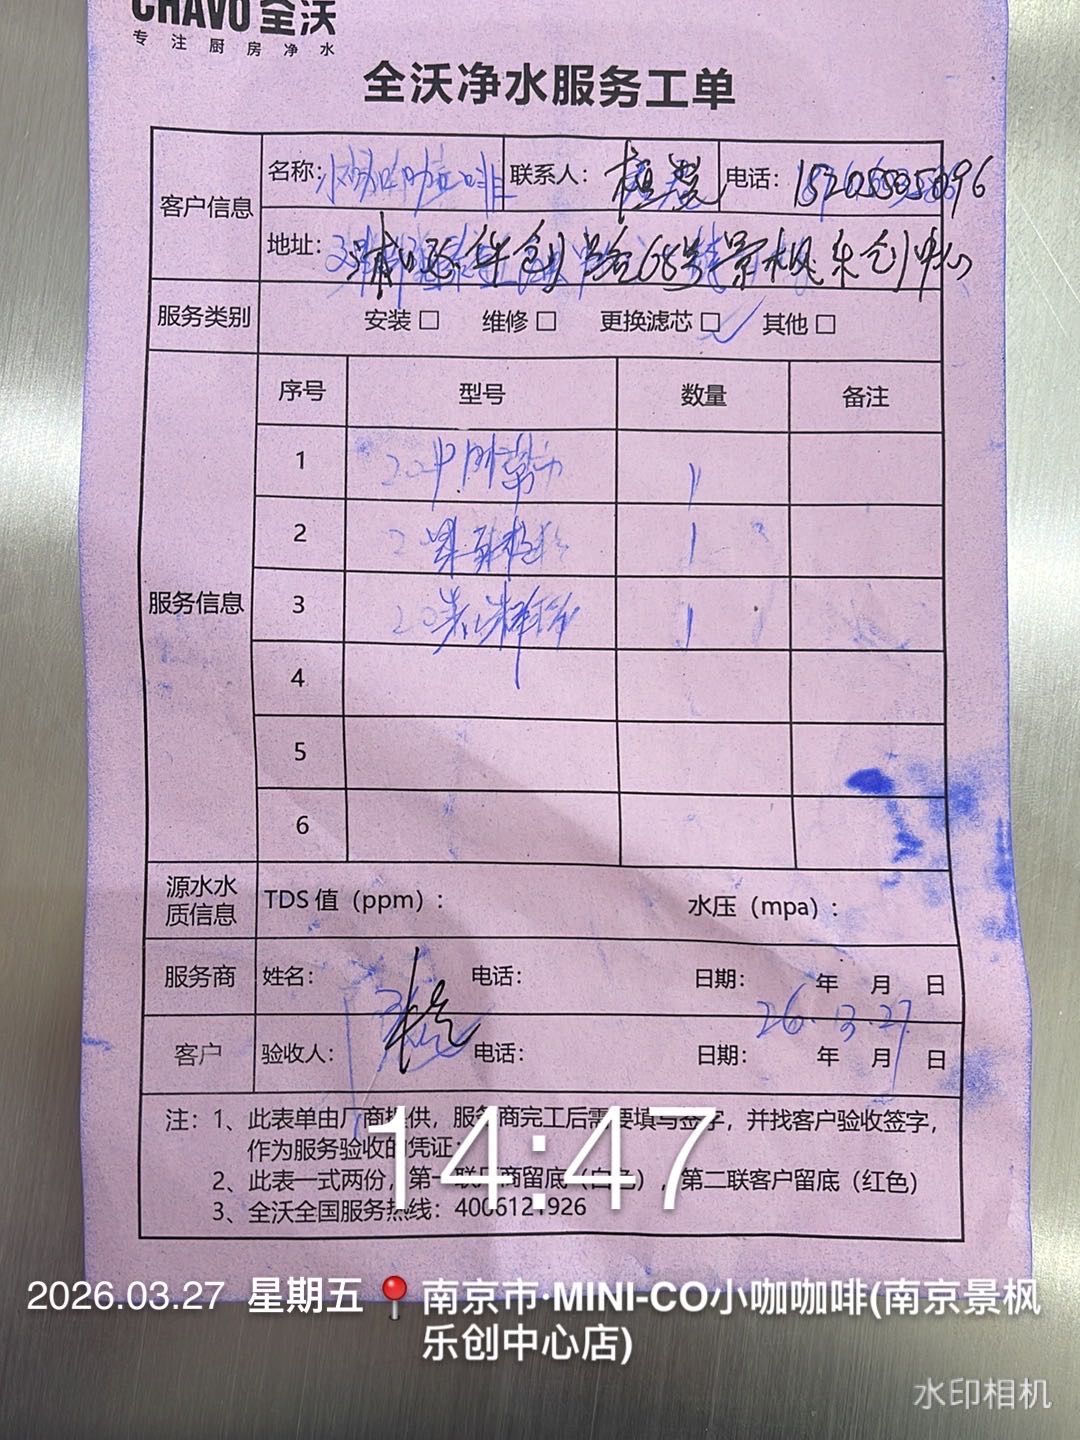 CHAVO 全沃
专注厨房净水
全沃净水服务工单
客户信息 名称: 联系人: 电话:
地址: 68号景枫乐创中心
服务类别 安装□ 维修□ 更换滤芯□✓ 其他□
服务信息 序号 型号 数量 备注
1 1
2 1
3 1
4
5
6
源水水质信息 TDS 值（ppm）: 水压（mpa）:
服务商 姓名: 电话: 日期: 年 月 日
26. 3.27
客户 验收人: 电话: 日期: 年 月 日
注: 1、此表单由厂商提供，服务商完工后需要填写签字，并找客户验收签字，
作为服务验收的凭证;
2、此表一式两份，第一联厂商留底（白色），第二联客户留底（红色）
3、全沃全国服务热线: 4006121926
14:47
2026.03.27 星期五 📍南京市·MINI-CO小咖咖啡(南京景枫
乐创中心店)
水印相机